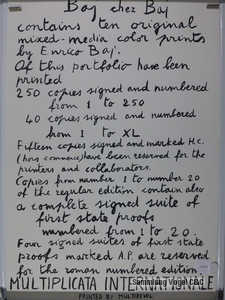 Baj chez Baj
contains ten original
mixed-media color prints
by Enrico Baj.
Of this portfolio have been
printed
250 copies signed and numbered
from 1 to 250
40 copies signed and numbered
from 1 to XL
Fifteen copies signed and marked H.C.
(hors commerce) have been reserved for the
printers and collaborators.
Copies from number 1 to number 20
of the regular edition contain also
a complete signed suite of
first state proofs
numbered from 1 to 20.
Four signed suites of first state
proofs marked A.P. are reserved
for the roman numbered edition
MULTIPLICATA INTERNATIONALE
PRINTED BY MULTIREVOL